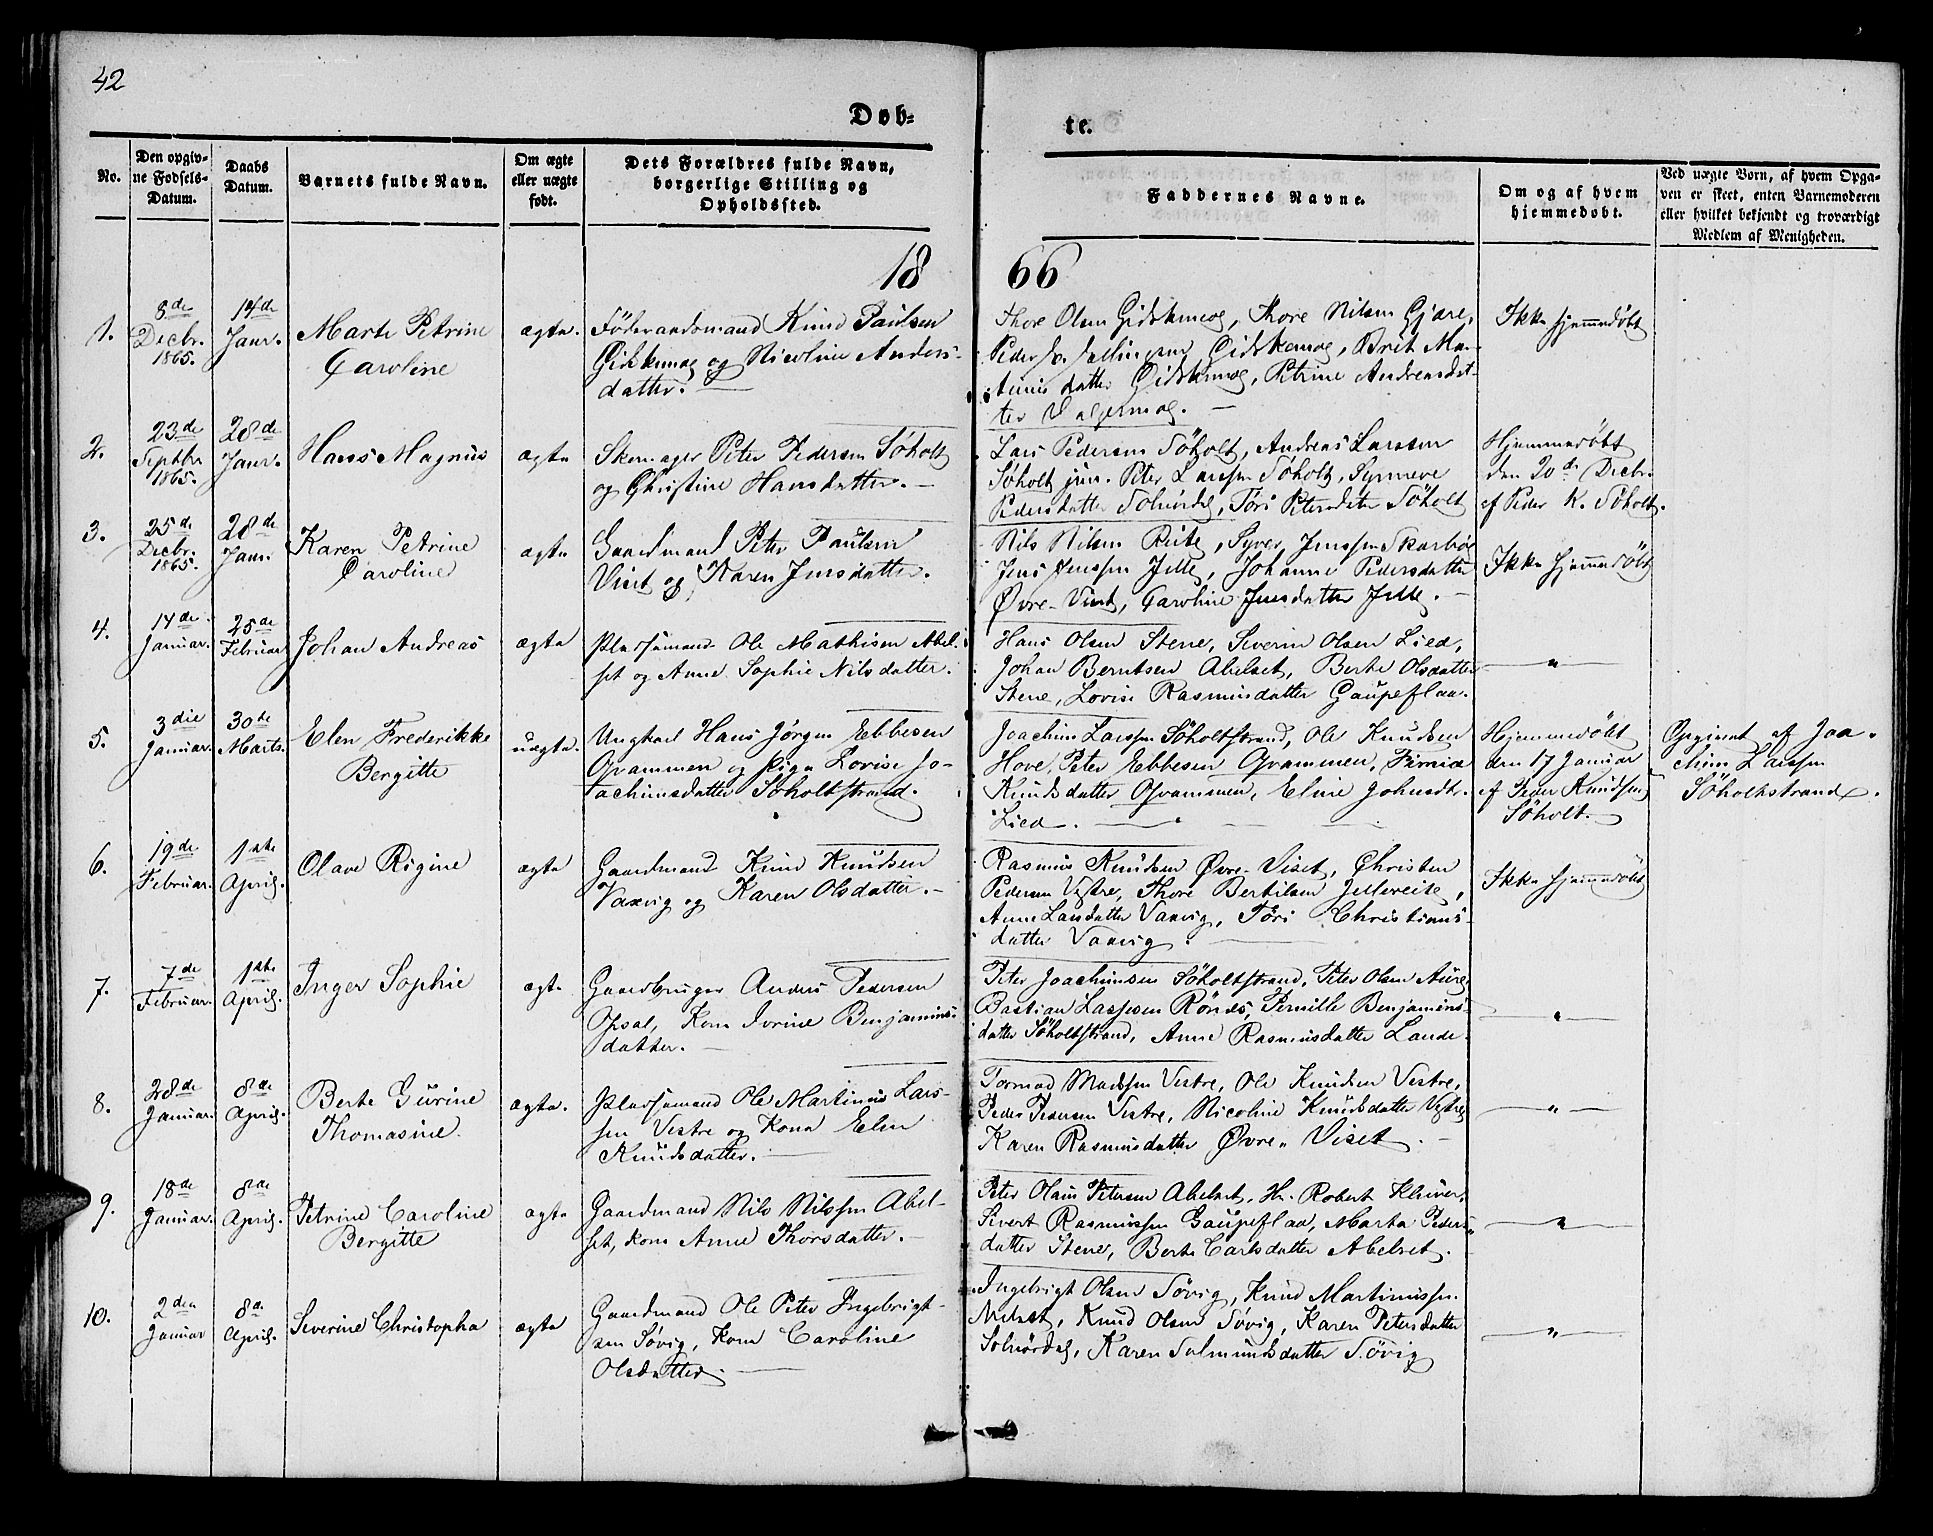 42
Døb-
te.
No.
Den opgiv-
ne Fødsels-
Datum.
Daabs
Datum.
Barnets fulde Navn.
Om ægte
eller uægte
født.
Dets Forældres fulde Navn,
borgerlige Stilling og
Opholdssted.
Faddernes Navne.
Om og af hvem
hjemmedøbt.
Ved uægte Børn, af hvem Opga-
ven er skeet, enten Barnemoderen
eller hvilket bekjendt og troværdigt
Medlem af Menigheden.
18
66
1.
8de
Decbr.
1865.
14de
Janr.
Marte Petrine
Caroline
ægte.
Føderaadsmand Knud Paulsen
Gidskemog og Nicoline Anders-
datter.
Thore Olsen Gidskemog, Thore Nilsen Gjære,
Peder Gidskemog, Brit Ma-
datter Gidskemog, Petrine Andreasdat-
ter
Ikke hjemmedøbt
2.
23de
Septbr.
1865.
28de
Janr.
Hans Magnus
ægte
Skomager Peter Pedersen Søholt
og Christine Hansdatter.
Lars Pedersen Søholt, Andreas Larssen
Søholt jun. Peter Larssen Søholt, Synneve
Pedersdatter Solnørdal, Tøri Petersdatter Søholt
Hjemmedøbt
den 20de Decbr.
af Peder K. Søholt.
3.
25de
Decbr.
1865.
28de
Janr.
Karen Petrine
Caroline
ægte
Gaardmand Peter Paulsen
Viset og Karen Jensdatter.
Nils Nilsen Reite, Syver Jenssen Skarbø
Jens Jenssen Jelle, Johanne Pedersdatter
Øvre-Viset, Caroline Jensdatter Jelle.
Ikke hjemmedøbt
4.
14de
Januar.
25de
Februar
Johan Andreas
ægte
Pladsemand Ole Mathisen Abel-
set og Anne Sophie Nilsdatter.
Hans Olsen Stene, Severin Olsen Lied,
Johan Berntsen Abelset, Berte Olsdatter
Stene, Lovise Rasmusdatter Gaupeflaa.
"
5.
3die
Januar.
30te
Marts.
Elen Frederikke
Bergitte
uægte.
Ungkarl Hans Jørgen Ebbesen
Qvammen og Pige Lovise Jo-
achimsdatter Søholtstrand.
Joachim Larssen Søholtstrand, Ole Knudsen
Hove, Peter Ebbesen Qvammen,
Knudsdatter Qvammen, Eline Johnsdtr.
Lied.
Hjemmedøbt
den 17 Januar
af Peder Knudsen
Søholt.
Opgivet af Joa-
chim Larssen
Søholtstrand.
6.
19de
Februar.
1ste
April.
Olave Regine
ægte
Gaardmand Knud Knudsen
Vaxvig og Karen Olsdatter.
Rasmus Knudsen Øvre-Viset, Christen
Pedersen Vestre, Thore Bertilsen Jellereite,
Anne Larsdatter Vaxvig, Tøri Christians-
datter Vaxvig.
Ikke hjemmedøbt
7.
7de
Februar.
1ste
April.
Inger Sophie
ægt.
Gaardbruger Anders Pedersen
Opsal, Kone Jorine Benjamins-
datter.
Peter Joachimsen Søholtstrand, Peter Olsen Aure,
Bastian Lassesen Rønes, Pernille Benjamins-
datter Søholtstrand, Anne Rasmusdatter Lande.
"
8.
28de
Januar.
8de
April.
Berte Gurine
Thomasine.
ægte.
Pladsemand Ole Martinus Lars-
sen Vestre og Kone Elen
Knudsdatter.
Tormod Madssen Vestre, Ole Knudsen Vestre,
Peder Pedersen Vestre, Nicoline Knudsdatter Vestre
Karen Rasmusdatter Øvre-Viset.
"
9.
18de
Januar.
8de
April.
Petrine Caroline
Bergitte
ægte
Gaardmand Nils Nilssen Abel-
set, Kone Anne Thorsdatter.
Peter Olaus Petersen Abelset, Hr. Robert Klüver,
Sivert Rasmussen Gaupeflaa, Marta Peders-
datter Stene, Berte Carlsdatter Abelset.
"
10.
2den
Januar
8de
April.
Severine Christopha
ægte
Gaardmand Ole Peter Ingebrigt-
sen Søvig, Kone Caroline
Olsdatter.
Ingebrigt Olsen Søvig, Knud Martinussen
Nedset, Knud Olsen Søvig, Karen Petersdatter
Solnørdal, Karen Salmundsdatter Søvig
"